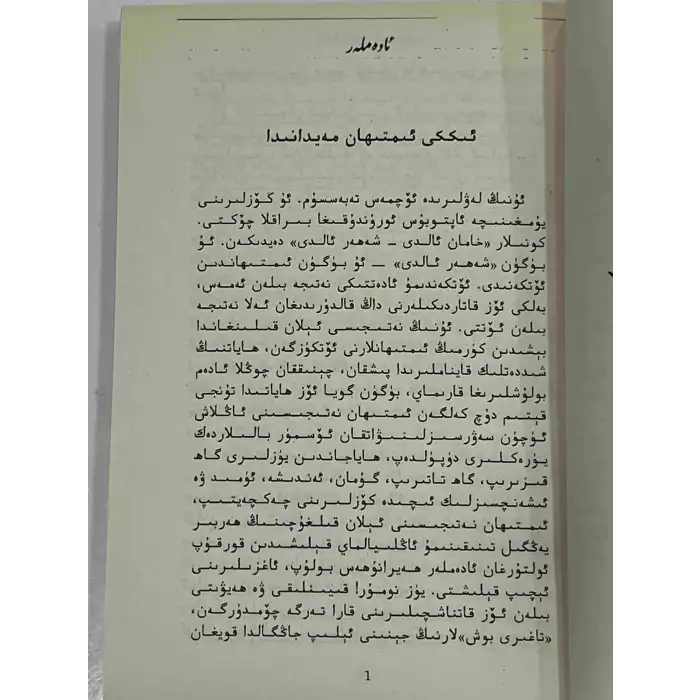 ئادەملەر
ئىككى ئىمتىھان مەيدانىدا
ئۇنىڭ لەۋلىرىدە ئۆچمەس تەبەسسۇم. ئۇ كۆزلىرىنى
يۇمغىنىچە ئاپتوبۇس ئورۇندۇقىغا بىراقلا چۆكتى.
كونىلار «خامان ئالدى – شەھەر ئالدى» دەيدىكەن. ئۇ
بۈگۈن «شەھەر ئالدى» — ئۇ بۈگۈن ئىمتىھاندىن
ئۆتكەنىدى. ئۆتكەندىمۇ ئادەتتىكى نەتىجە بىلەن ئەمەس،
بەلكى ئۆز قاتاردىكىلەرنى داڭ قالدۇرىدىغان ئەلا نەتىجە
بىلەن ئۆتتى. ئۇنىڭ نەتىجىسى ئېلان قىلىنغاندا
بېشىدىن كۆرمىڭ ئىمتىھانلارنى ئۆتكۈزگەن، ھاياتنىڭ
شىددەتلىك قايناملىرىدا پىشقان، چېنىققان چوڭلا ئادەم
بولۇشلىرىغا قارىماي، بۈگۈن گويا ئۆز ھاياتىدا تۇنجى
قېتىم دۇچ كەلگەن ئىمتىھان نەتىجىسىنى ئاڭلاش
ئۈچۈن سەۋرسىزلىنىۋاتقان ئۆسمۈر بالىلاردەك
يۈرەكلىرى دۈپۈلدەپ، ھاياجاندىن يۈزلىرى گاھ
قىزىرىپ، گاھ تاتىرىپ، گۇمان، ئەندىشە، ئۈمىد ۋە
ئىشەنچسىزلىك ئىچىدە كۆزلىرىنى چەكچەيتىپ،
ئىمتىھان نەتىجىسىنى ئېلان قىلغۇچىنىڭ ھەربىر
يەڭگىل تىنىقىنىمۇ ئاڭلىيالماي قېلىشىدىن قورقۇپ
ئولتۇرغان ئادەملەر ھەيرانۇھەس بولۇپ، ئاغزىلىرىنى
ئېچىپ قېلىشتى. يۈز نومۇر! قىيىنلىقى ۋە ھەيۋىتى
بىلەن ئۆز قاتناشچىلىرىنى قارا تەرگە چۆمدۈرگەن،
«تاغىرى بوش»لارنىڭ جېنىنى ئېلىپ جاڭگالدا قويغان
1